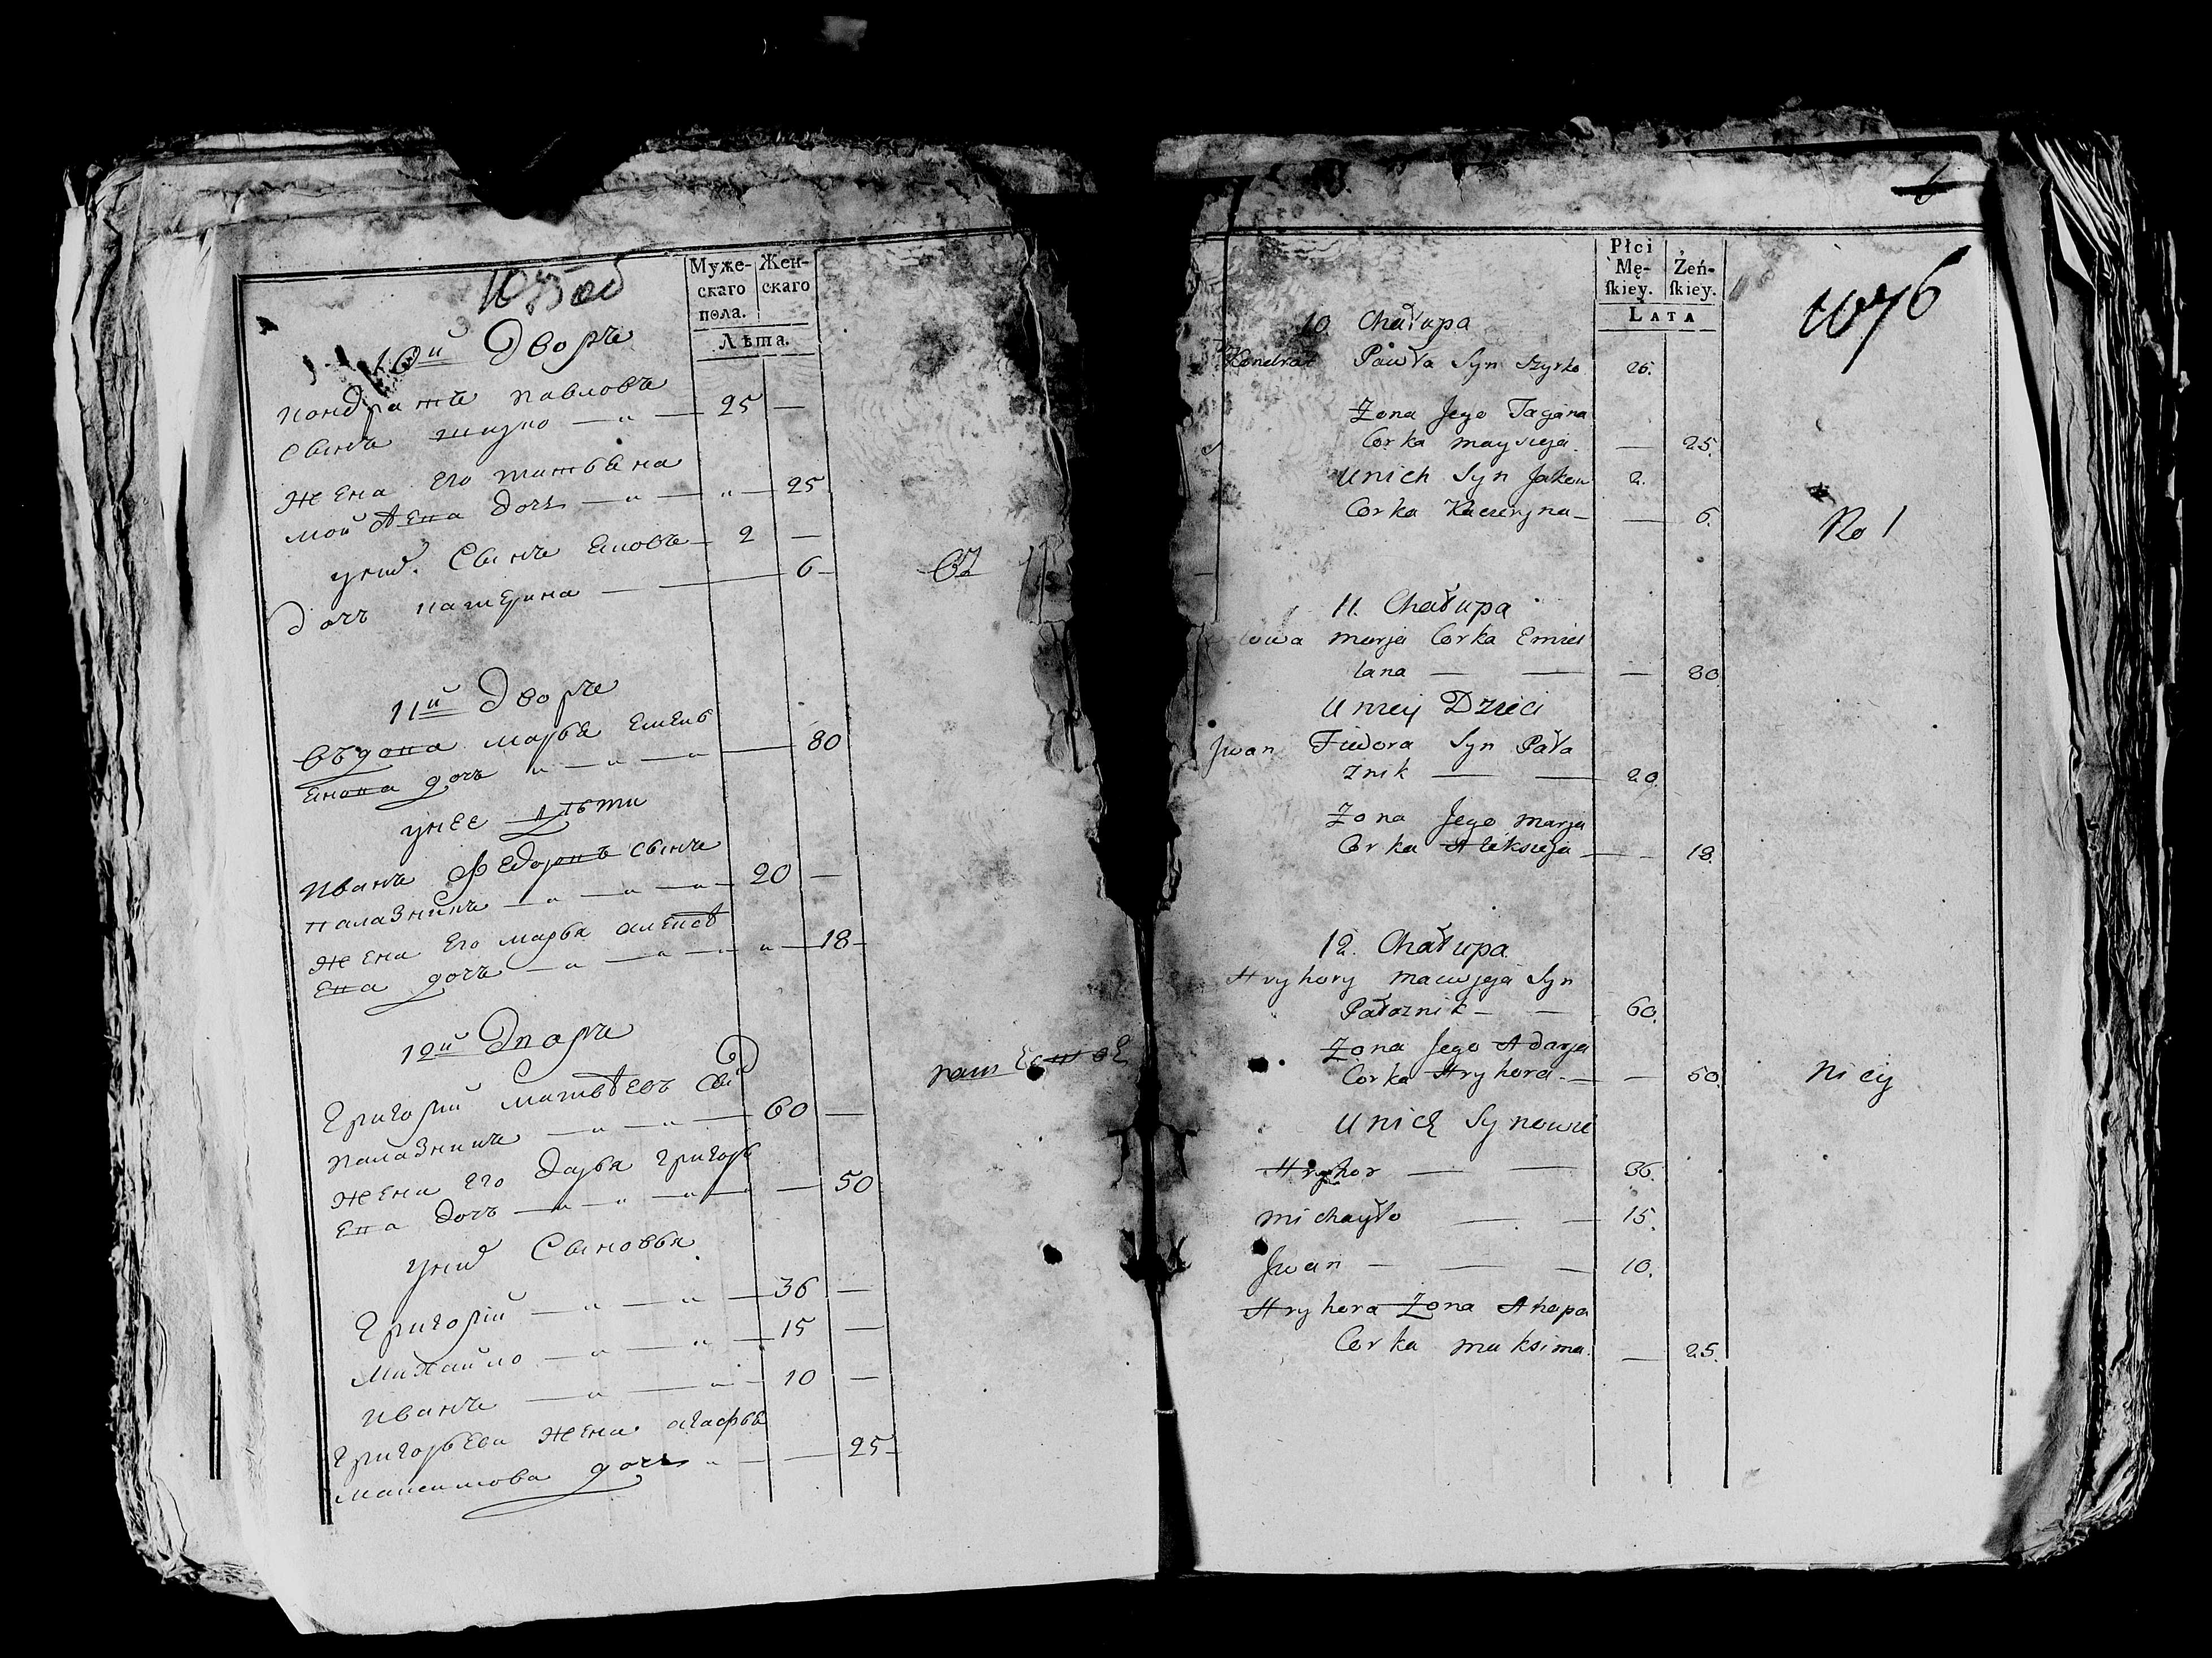 1075 об
Муже-
скаго
пола.
Жен-
скаго
Лѣта.
10й Дворъ
Кондратъ Павловъ
Сынъ Шизко — 25 —
Жена Его Татьяна
Мойсѣева дочь — 25
унихъ Сынъ Яковъ — 2 —
дочь Катерина — 6
11й Дворъ
Въдова Марья Емель
янова дочь — 80
унее дѣти
Иванъ Федоровъ Сынъ
Палазникъ — 20 —
Жена Его Марья Алексѣ
Ева дочь — 18
12й Дворъ
Григорій Матвѣевъ Сын
Палазникъ — 60 —
Жена Его Дарья Григорь
Ева дочь — 50
унихъ Сыновья
Григорій — 36 —
Михайло — 15 —
Иванъ — 10 —
Григорьева Жена Агафья
Максимова дочь — 25
6
1076
Płci
Mę-
ſkiey.
Żeń-
ſkiey.
LATA
10. Chałupa
Kondrat Pawła Syn Szyrko 25.
Żona Jego Tagana
Corka Maysieja — 25.
Unich Syn Jakow 2.
Corka Kacieryna — 6.
No 1
11. Chałupa
Marja Corka Emiel
lana — 80
Uniey Dzieci
Jwan Fiedora Syn Pała
znik — 20.
Żona Jego Marja
Corka Aleksieja — 18.
12. Chałupa
Hryhory Maciejeja Syn
Pałaznik — 60.
Żona Jego Adarja
Corka Hryhora — 50.
Unich Synowie
Hryhor — 36.
Michayło — 15.
Jwan — 10.
Hryhora Żona Ahapa
Corka Maksima — 25.